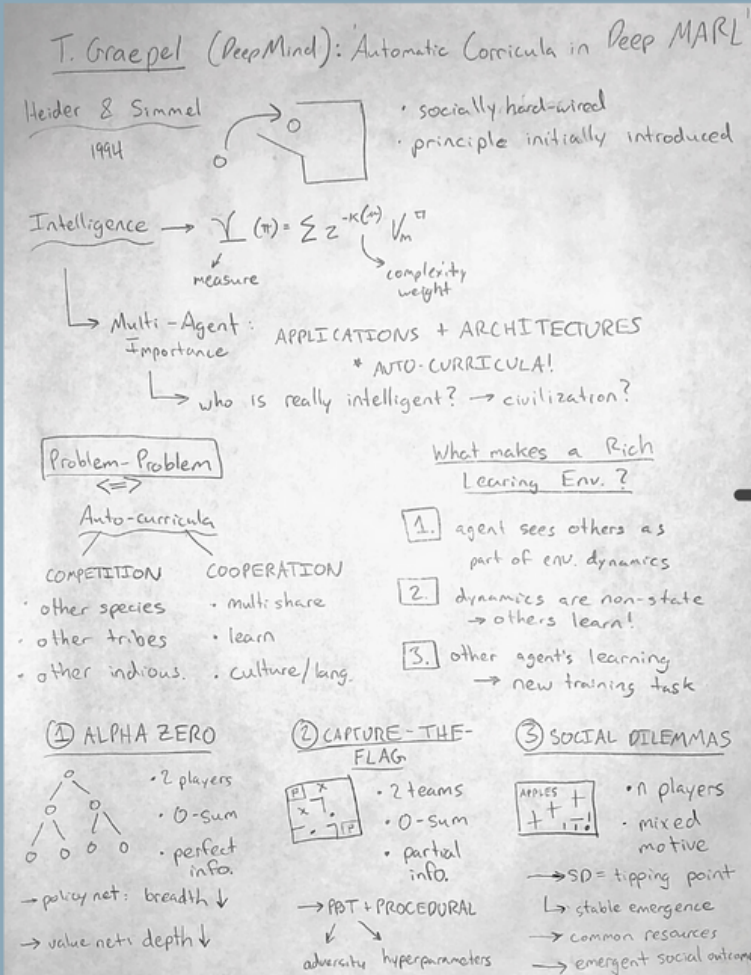 T. Graepel (DeepMind): Automatic Corricula in Deep MARL
Heider & Simmel
1994
· socially hard-wired
· principle initially introduced
Intelligence → Υ (π) = Σ 2^-K(m) V_m^π
measure
complexity
weight
Multi-Agent:
Importance
APPLICATIONS + ARCHITECTURES
* AUTO-CURRICULA!
who is really intelligent? → civilization?
Problem-Problem
<=>
Auto-curricula
COMPETITION
· other species
· other tribes
· other indious.
COOPERATION
· multi share
· learn
· culture/lang.
What makes a Rich
Learing Env.?
1. agent sees others as
part of env. dynamics
2. dynamics are non-state
→ others learn!
3. other agent's learning
→ new training task
① ALPHA ZERO
· 2 players
· 0-sum
· perfect
info.
→ policy net: breadth ↓
→ value net: depth ↓
② CAPTURE-THE-
FLAG
· 2 teams
· 0-sum
· partial
info.
→ PBT + PROCEDURAL
adversity hyperparameters
③ SOCIAL DILEMMAS
APPLES
· n players
· mixed
motive
→ SD = tipping point
↳ stable emergence
→ common resources
→ emergent social outcom